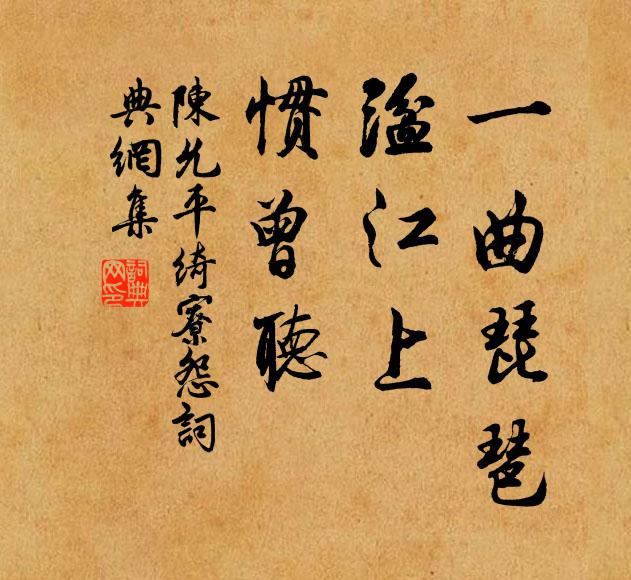 一曲琵琶
湓江上
慣曾聽
陳允平綺寮怨詞
典網集
詞典网印